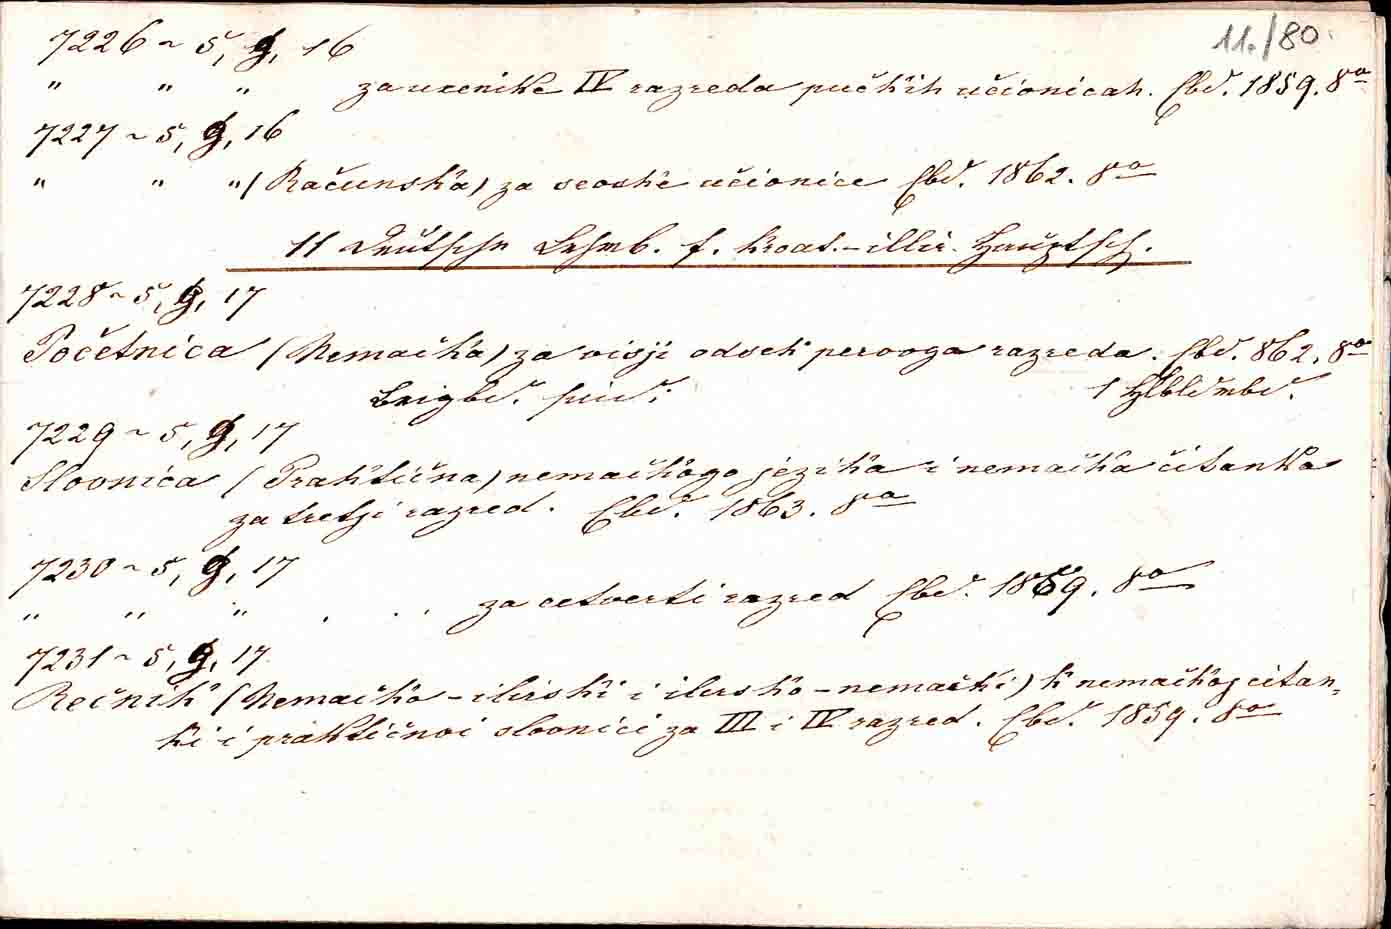 11./80.
7226 ~ 5, g, 16
" " " za ucenike IV razreda pučkih učionicah. Ebd. 1859. 8o
7227 ~ 5, g, 16
" " " (Računska) za seoske učionice Ebd. 1862. 8o
11 Deutsche Lehrb. f. kroat.-illir. Hauptsch.
7228 ~ 5, g, 17
Početnica (Nemačka) za visji odsek pervoga razreda. Ebd. 862. 8o
Beigbd. sind: 1 Hlbldrbd.
7229 ~ 5, g, 17
Slovnica (Praktična) nemačkoga jezika i nemačka čitanka
za tretji razred. Ebd. 1863. 8o
7230 ~ 5, g, 17
" " " . . . za cetverti razred Ebd. 1859. 8o
7231 ~ 5, g, 17
Rečnik (Nemačko-ilirski i ilirsko-nemački) k nemačkoj citan-
ki i praktičnoi slovnici za III i IV razred. Ebd. 1859. 8o